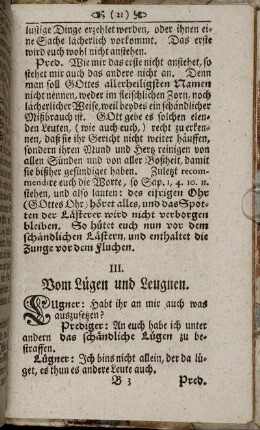 (21)
lustige Dinge erzehlet werden, oder ihnen ei-
ne Sache lächerlich vorkommt. Das erste
wird euch wohl nicht anstehen.
Pred. Wie mir das erste nicht anstehet, so
stehet mir auch das andere nicht an. Denn
man soll GOttes allerheiligsten Namen
nicht nennen, weder im fleischlichen Zorn, noch
lächerlicher Weise, weil beydes ein schändlicher
Mißbrauch ist. GOtt gebe es solchen elen-
den Leuten, (wie auch euch,) recht zu erken-
nen, daß sie ihr Gericht nicht weiter häuffen,
sondern ihren Mund und Hertz reinigen von
allen Sünden und von aller Boßheit, damit
sie bißher gesündiget haben. Zuletzt recom-
mendire euch die Worte, so Sap. 1, 4. 10. 11.
stehen, und also lauten: des eifrigen Ohr
(GOttes Ohr) höret alles, und das Spot-
ten der Lästerer wird nicht verborgen
bleiben. So hütet euch nun vor dem
schändlichen Lästern, und enthaltet die
Zunge vor dem Fluchen.
III.
Vom Lügen und Leugnen.
Lügner: Habt ihr an mir auch was
auszusetzen?
Prediger: An euch habe ich unter
andern das schändliche Lügen zu be-
straffen.
Lügner: Ich bins nicht allein, der da lü-
get, es thun es andere Leute auch.
B 3 Pred.